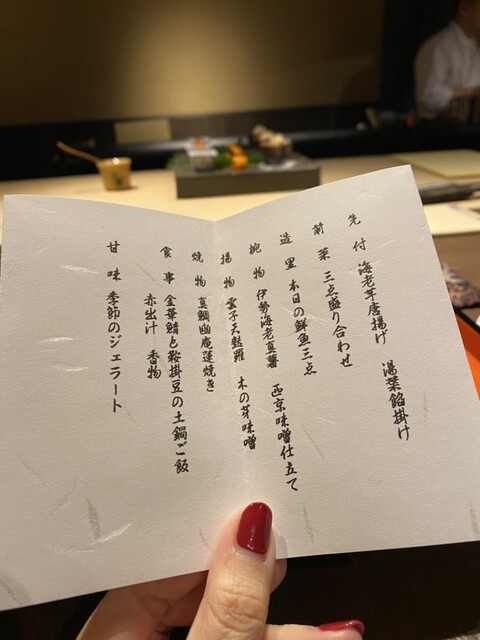 先付 海老茸唐揚げ 湯葉餡掛け
前菜 三点盛り合わせ
造里 本日の鮮魚三点
椀物 伊勢海老真薯 西京味噌仕立て
揚物 雲子天麩羅 木の芽味噌
焼物 真鯛幽庵蓮焼き
食事 金華鯖と鞍掛豆の土鍋ご飯
赤出汁 香物
甘味 季節のジェラート